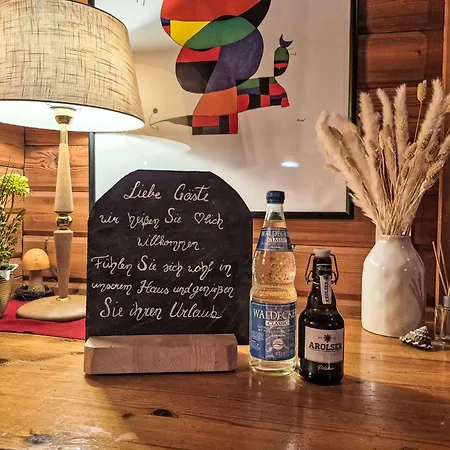 Liebe Gäste
wir heißen Sie ♡lich
willkommen.
Fühlen Sie sich wohl in
unserem Haus und genießen
Sie ihren Urlaub
WALDECKER
CLASSIC
AROLSER